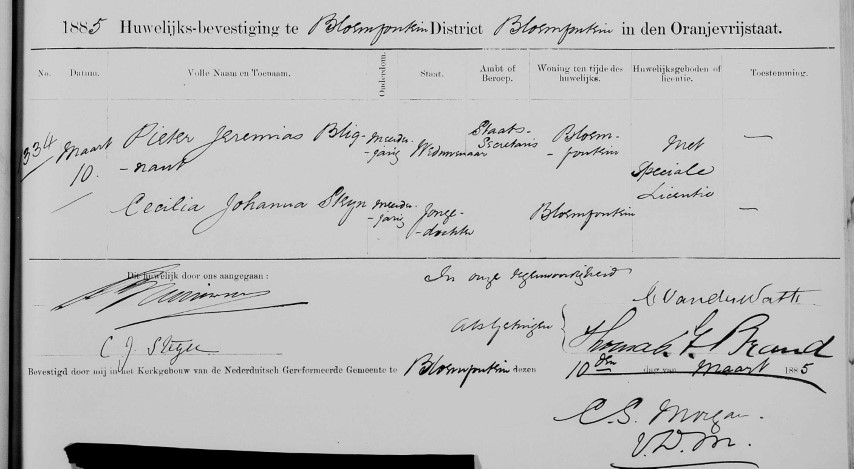 1885 Huwelijks-bevestiging te Bloemfontein District Bloemfontein in den Oranjevrijstaat.
No. Datum. Volle Naam en Toenaam. Ouderdom. Staat. Ambt of Beroep. Woning ten tijde des huwelijks. Huwelijksgeboden of licentie. Toestemming.
334 Maart 10. Pieter Jeremias Blig-naut meerder-jarig Weduwenaar Staats-Secretaris Bloem-fontein Met Speciale Licentie —
Cecilia Johanna Steyn meerder-jarig Jonge-dochter Bloemfontein —
Dit huwelijk door ons aangegaan: In onze tegenwoordigheid
C J Steyn Als getuigen
Brand
Bevestigd door mij in het Kerkgebouw van de Nederduitsch Gereformeerde Gemeente te Bloemfontein dezen 10den dag van Maart 1885
C. S. Morgan.
V. D. M.